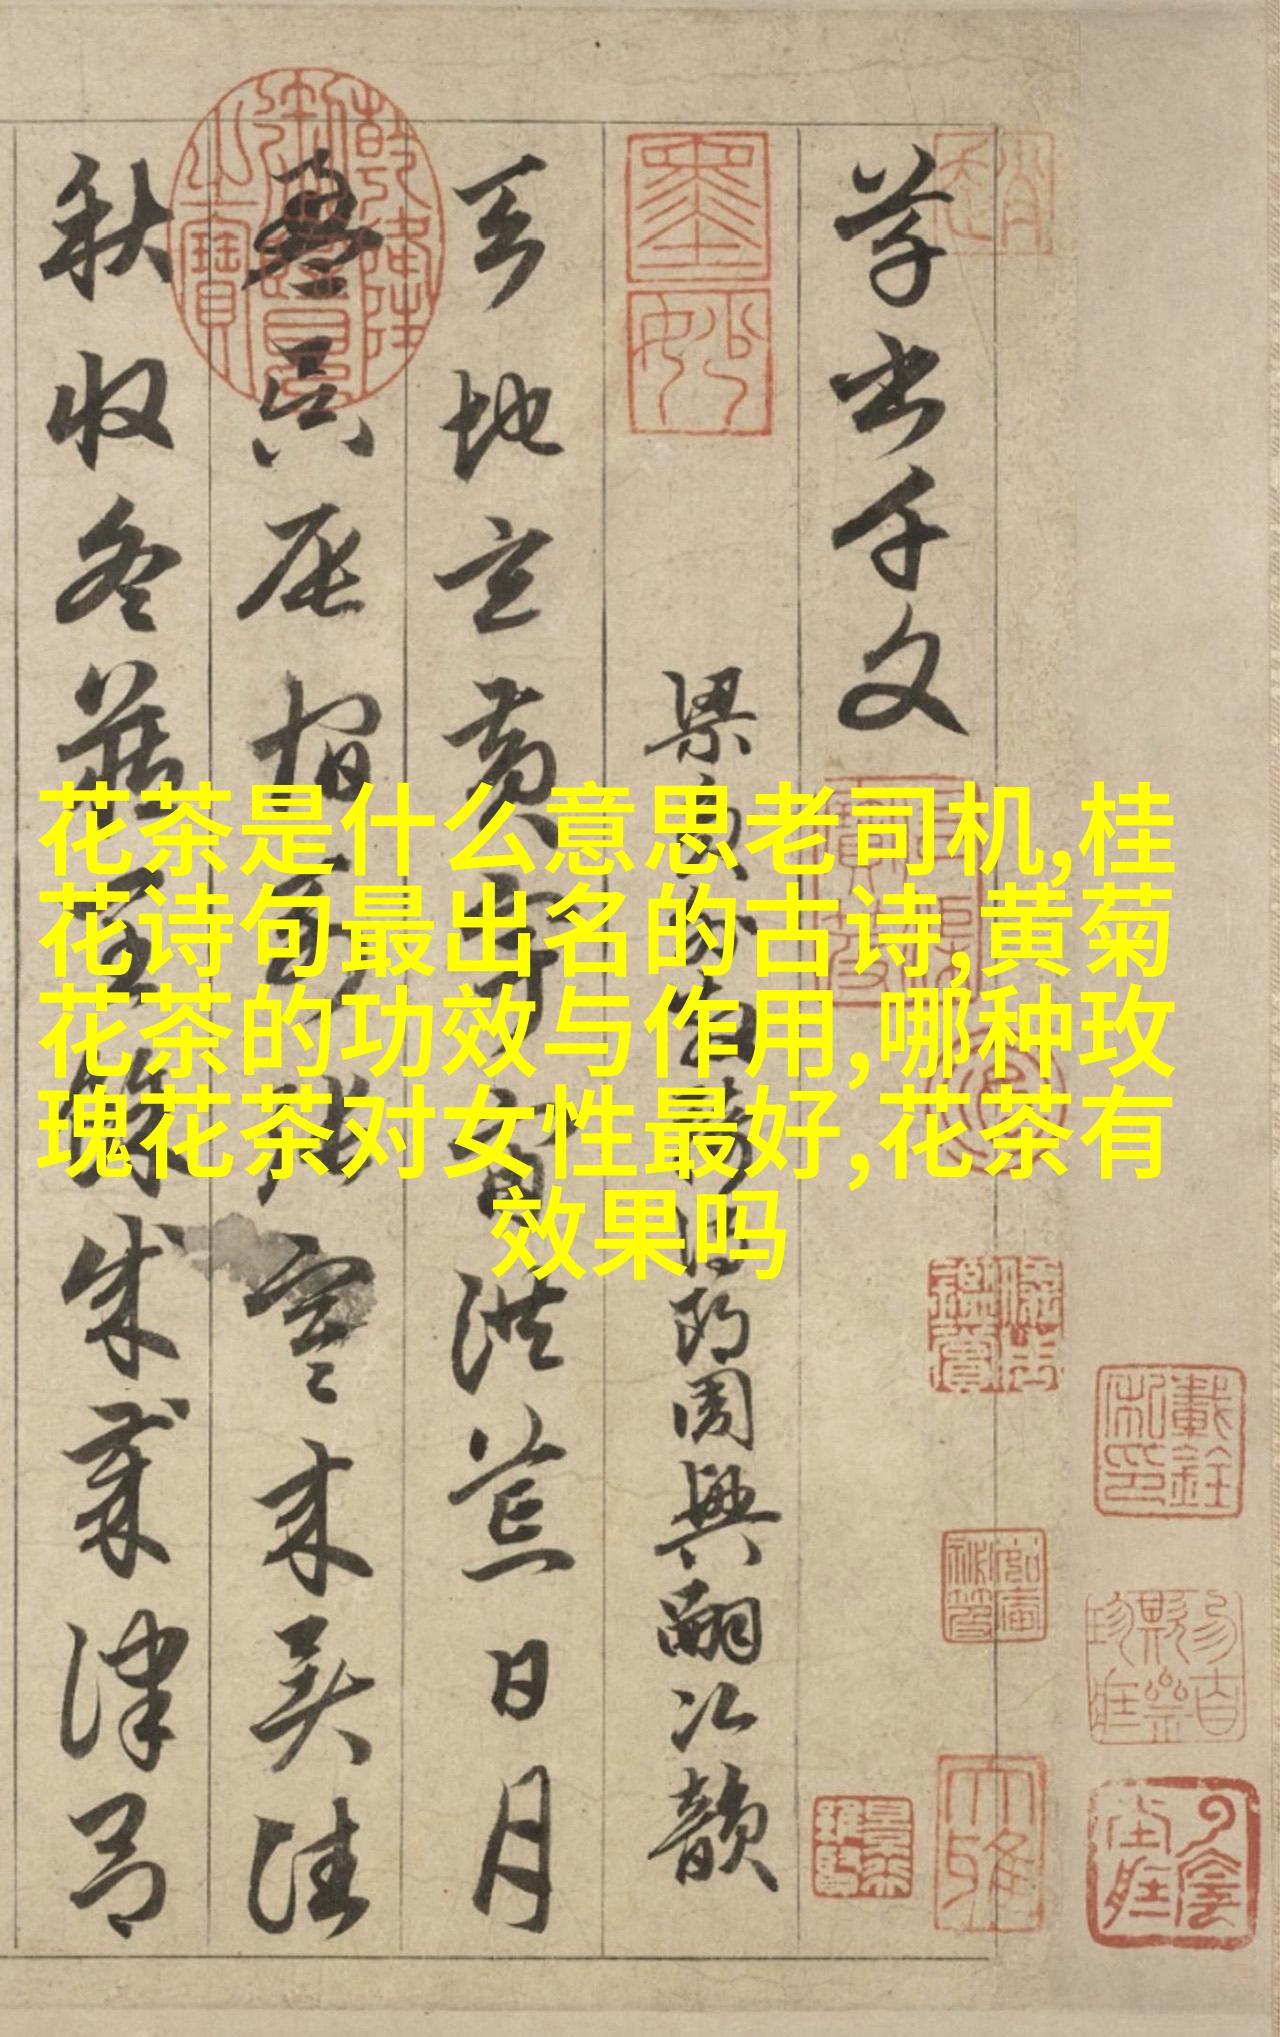 草书千文
梁员外散骑侍郎周兴嗣次韵
天地玄黄宇宙洪荒日月
盈昃辰宿列张寒来暑往
秋收冬藏闰余成岁律吕
花茶是什么意思老司机,桂
花诗句最出名的古诗,黄菊
花茶的功效与作用,哪种玫
瑰花茶对女性最好,花茶有
效果吗